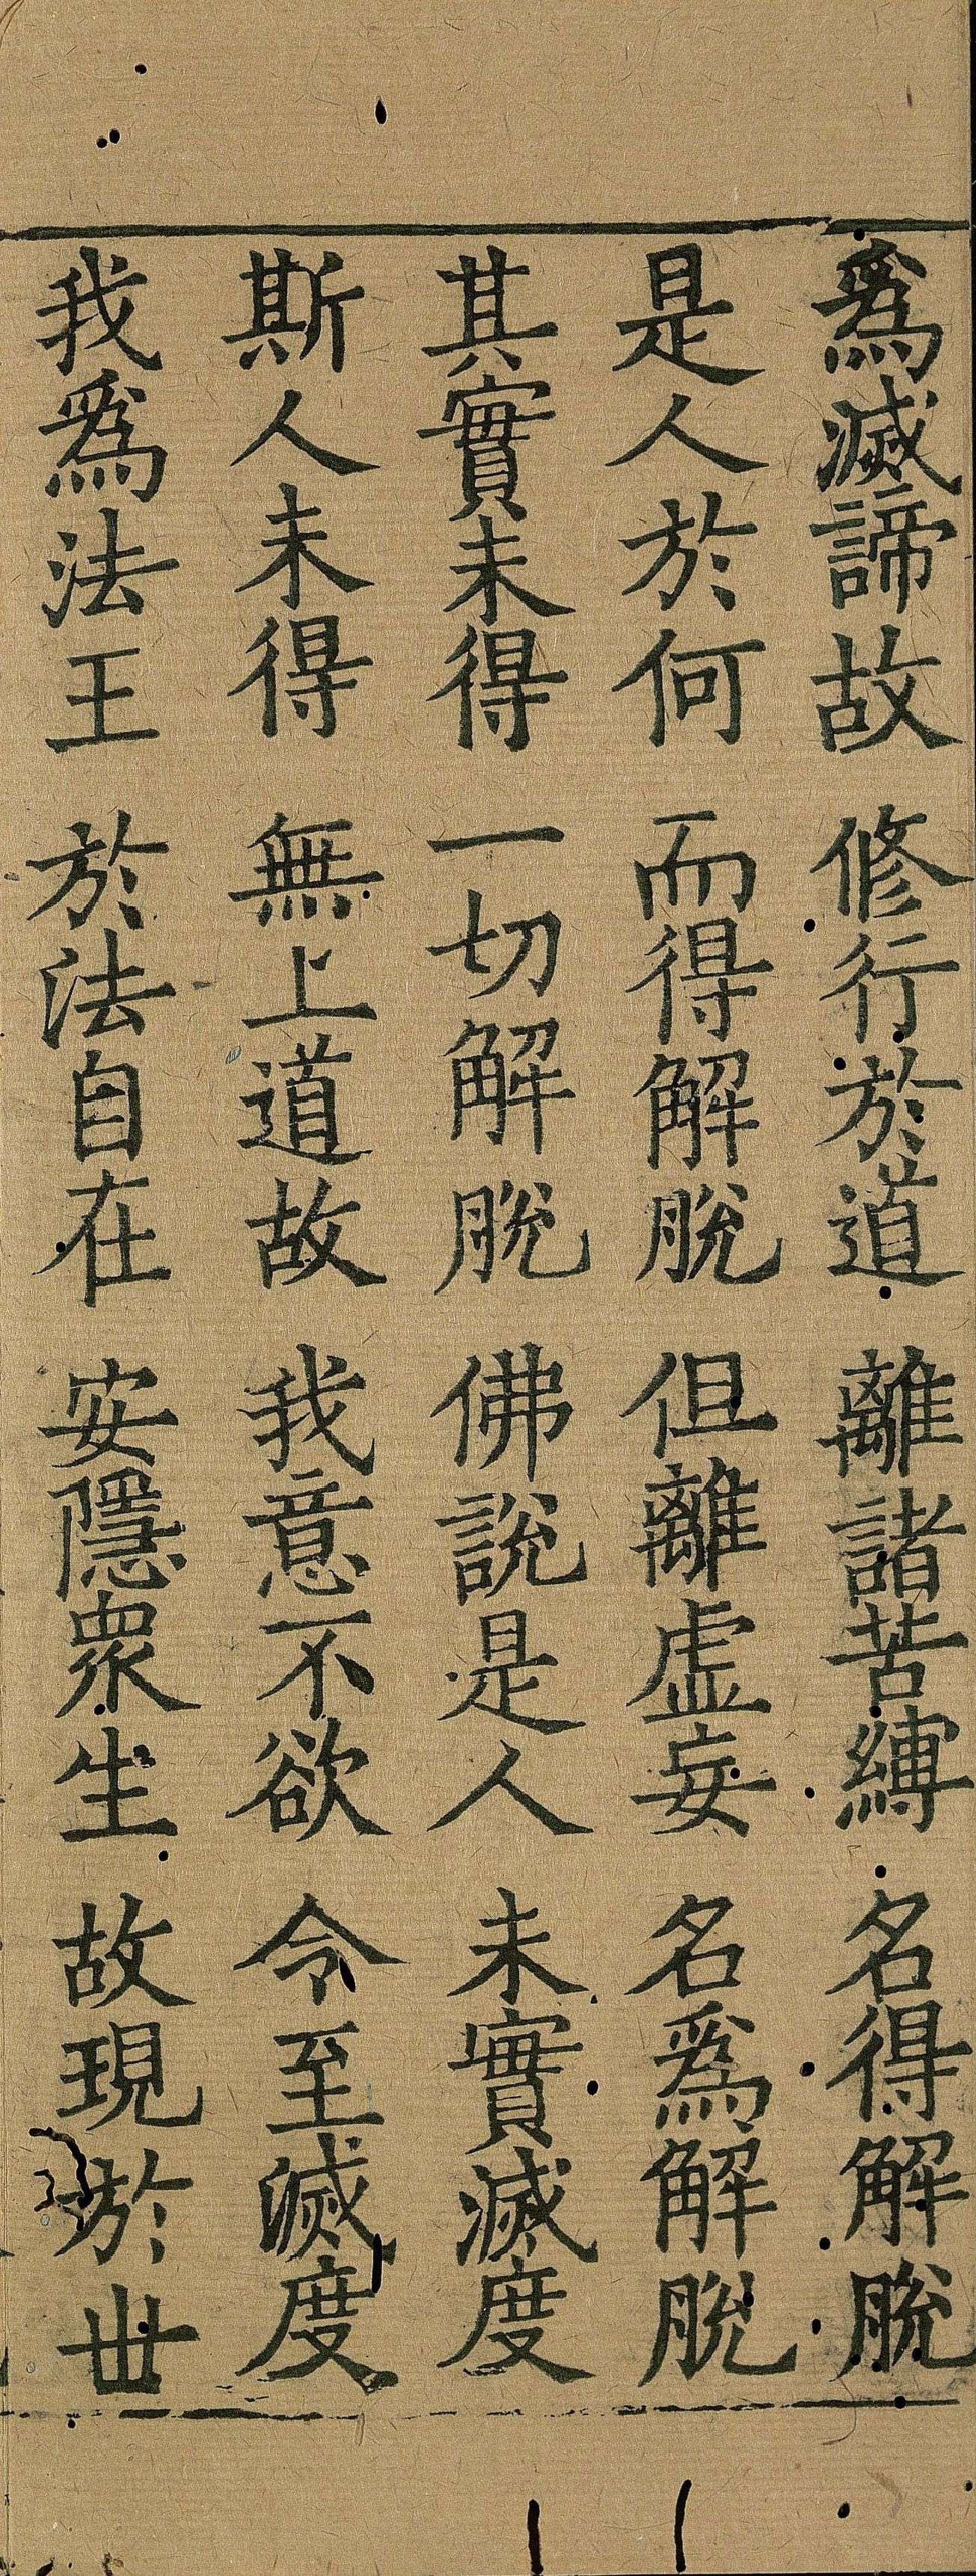 爲滅諦故　修行於道　離諸苦縛　名得解脫
是人於何　而得解脫　但離虛妄　名爲解脫
其實未得　一切解脫　佛說是人　未實滅度
斯人未得　無上道故　我意不欲　令至滅度
我爲法王　於法自在　安隱衆生　故現於世